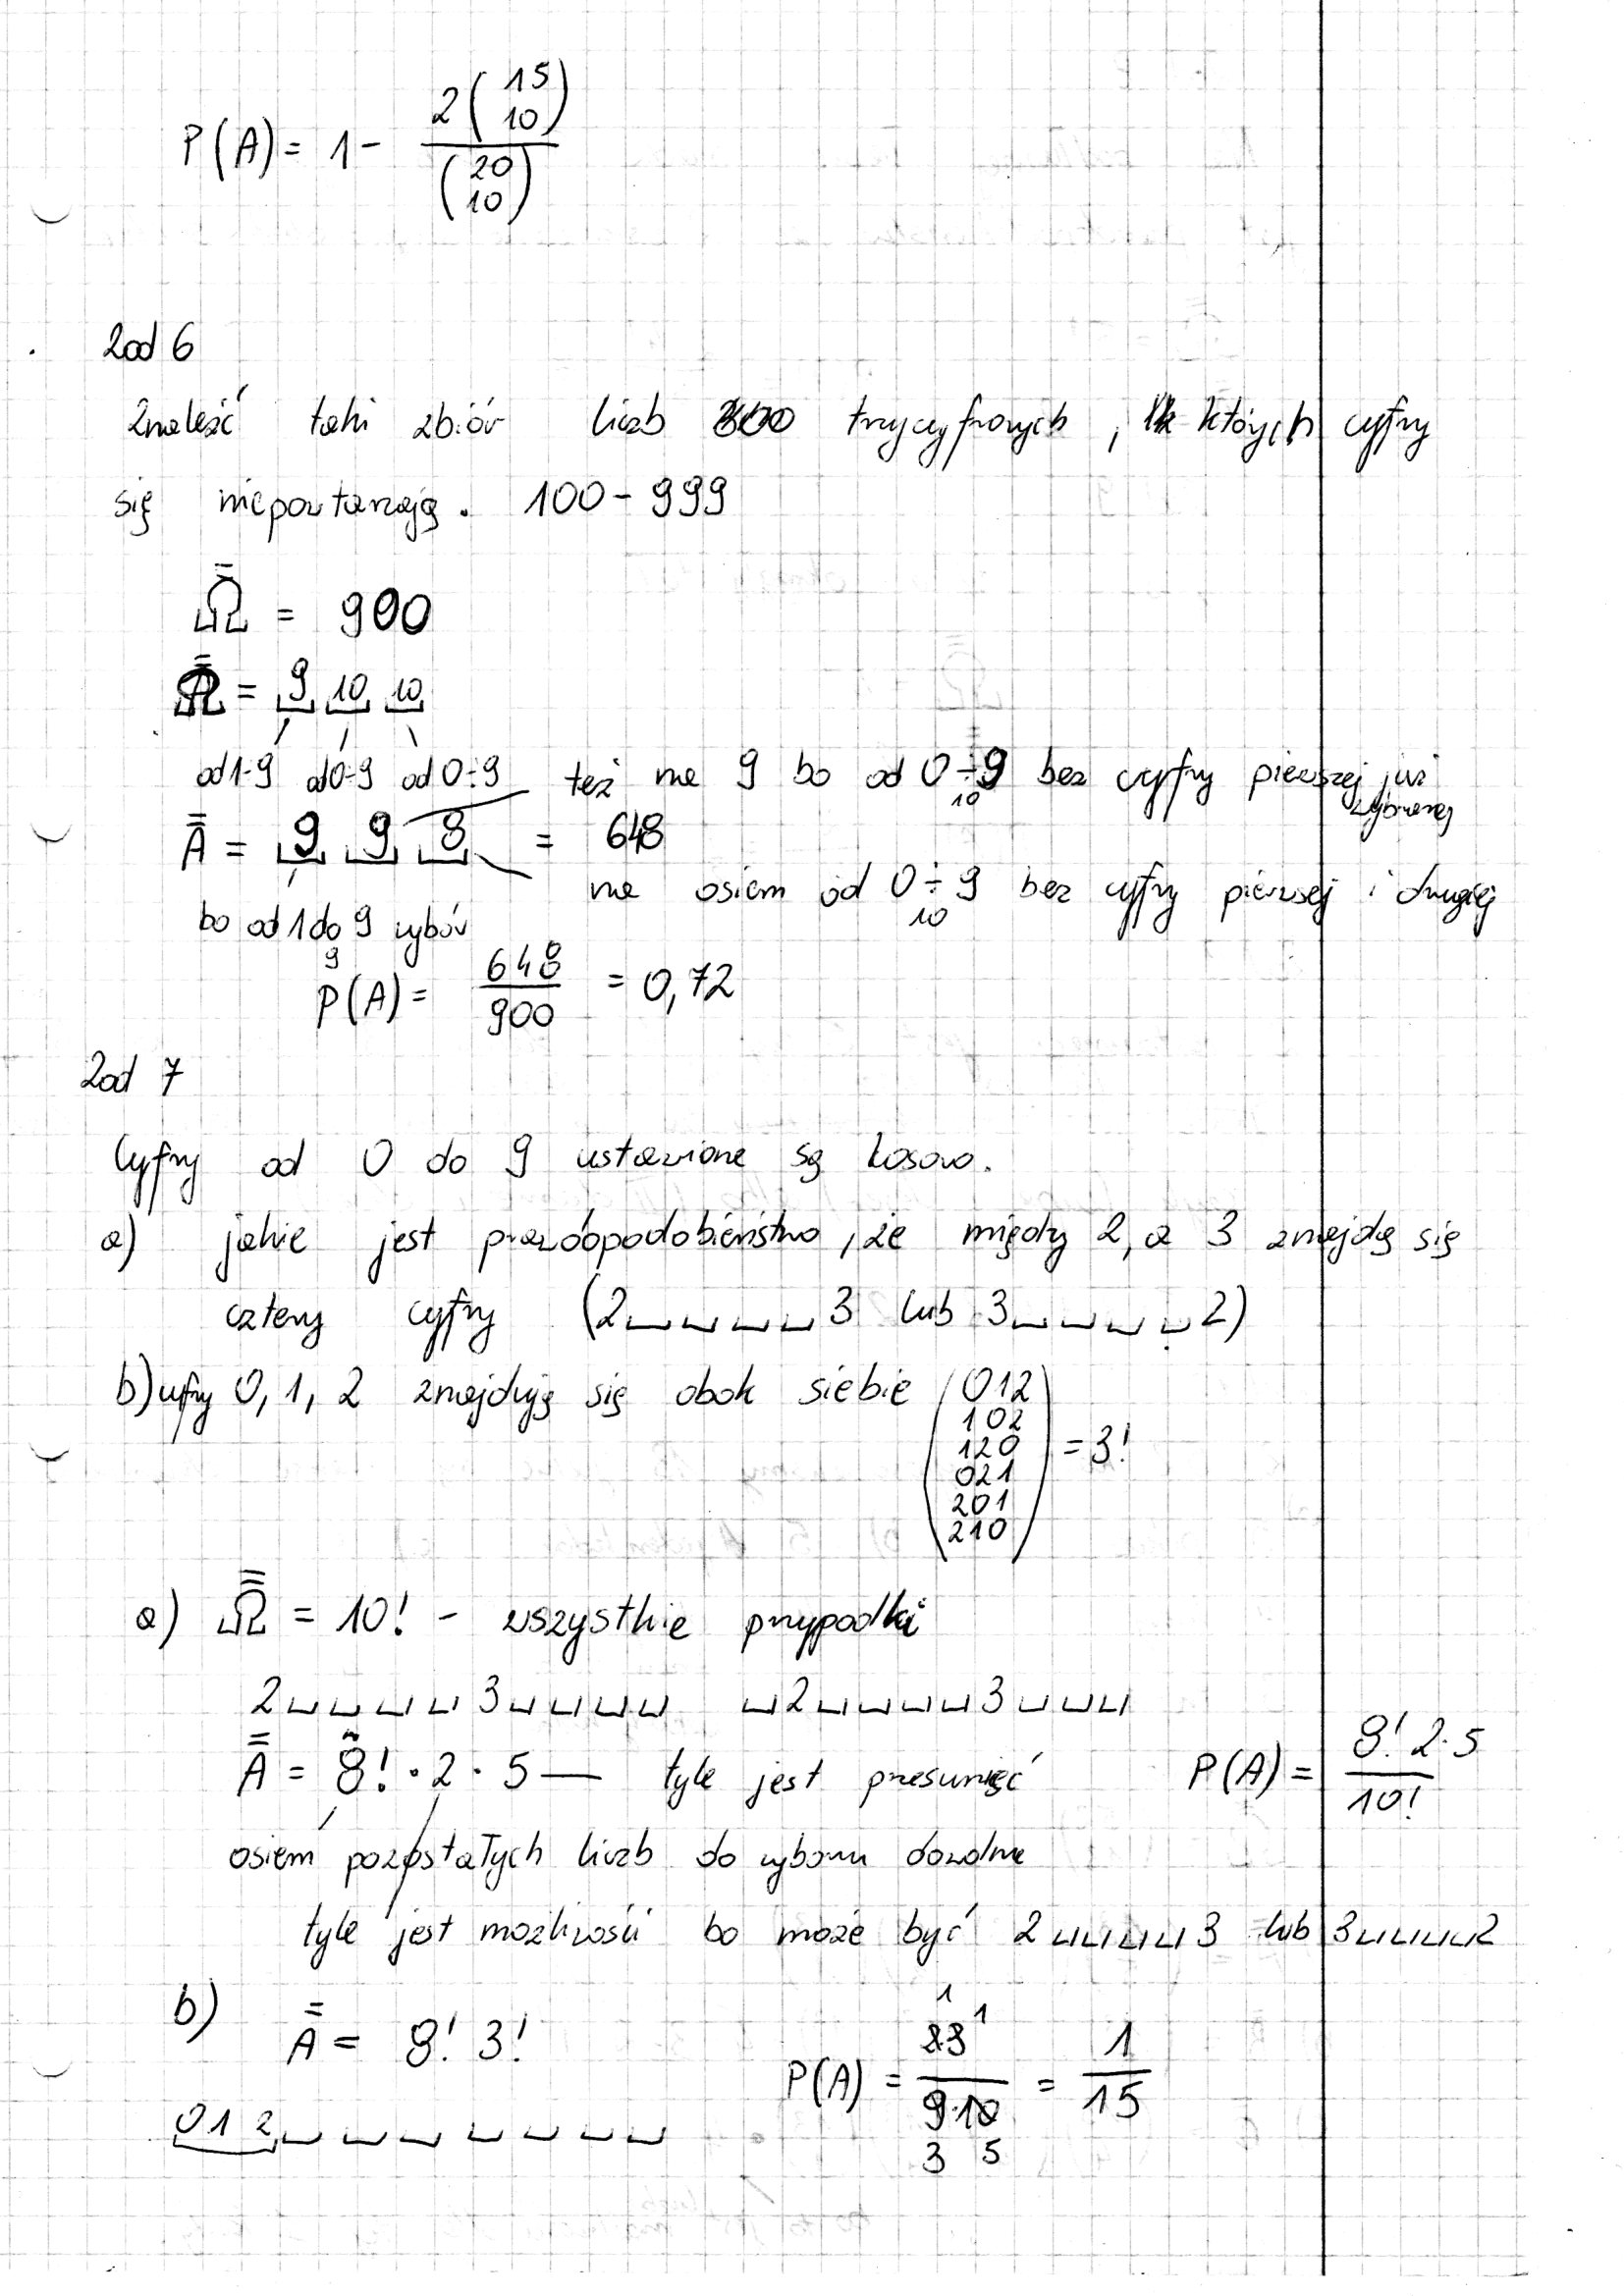 P(A) = 1 - 2(15 10) / (20 10)
Zad 6
Znaleść taki zbiór liczb trzycyfrowych, których cyfry
się niepowtarzają. 100 - 999
Ω̿ = 900
Ω̿ = 9 10 10
od 1-9 od 0-9 od 0÷9 też ma 9 bo od 0÷9 bez cyfry pierwszej już
10 wybranej
A̿ = 9 9 8 = 648
na osiem od 0÷9 bez cyfry pierwszej i drugiej
10
bo od 1 do 9 wybór
9
P(A) = 648/900 = 0,72
Zad 7
Cyfry od 0 do 9 ustawione są losowo.
a) jakie jest prawdopodobieństwo, że między 2, a 3 znajdą się
cztery cyfry (2 _ _ _ _ 3 lub 3 _ _ _ _ 2)
b) cyfry 0, 1, 2 znajdują się obok siebie (012
102
120 = 3!
021
201
210)
a) Ω̿ = 10! - wszystkie przypadki
2 _ _ _ _ 3 _ _ _ _ _ 2 _ _ _ _ 3 _ _ _
A̿ = 8! · 2 · 5 — tyle jest przesunięć P(A) = 8! 2·5 / 10!
osiem pozostałych liczb do wyboru dowolne
tyle jest możliwości bo może być 2 _ _ _ _ 3 lub 3 _ _ _ _ 2
b) A̿ = 8! 3!
1 1
P(A) = 2·3 / 9·10 = 1/15
3 5
0 1 2 _ _ _ _ _ _ _